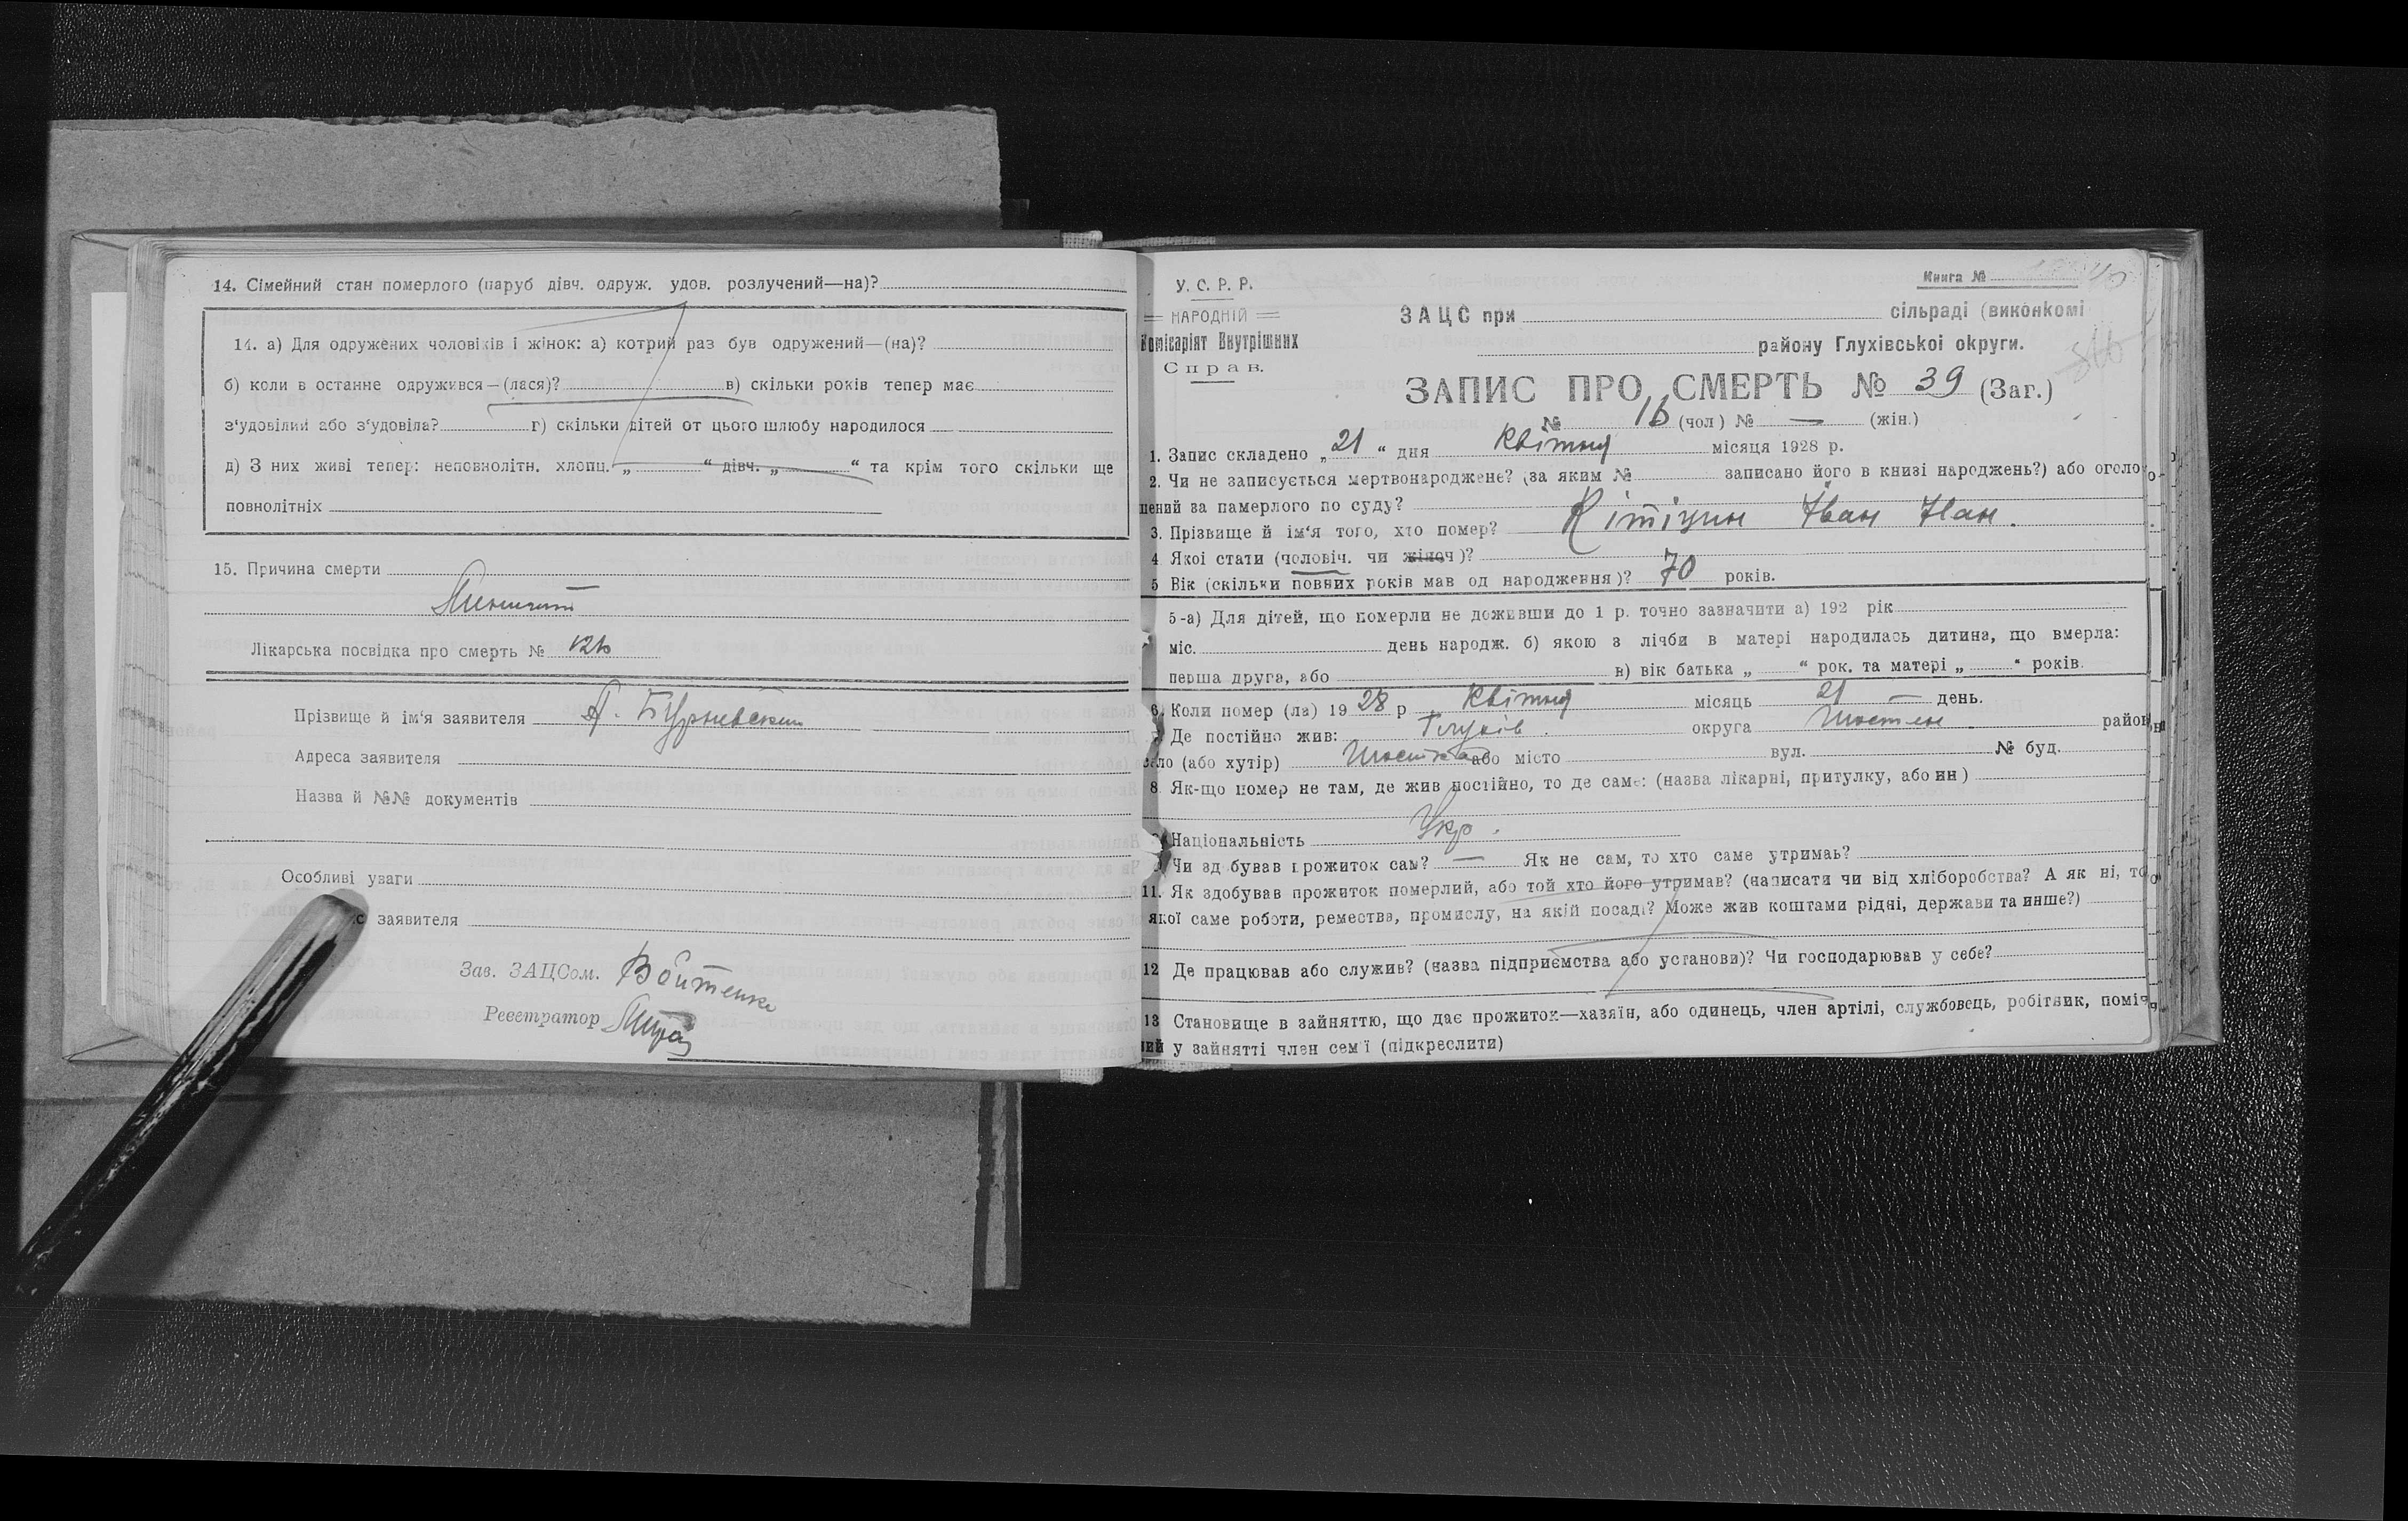 14. Сімейний стан померлого (паруб дівч. одруж. удов. розлучений—на)?
14. а) Для одружених чоловіків і жінок: а) котрий раз був одружений—(на)?
б) коли в останне одружився—(лася)? в) скільки років тепер має
з'удовілий або з'удовіла? г) скільки дітей от цього шлюбу народилося
д) З них живі тепер: неповнолітн. хлопц. „ “ дівч. „ “ та крім того скільки ще
повнолітніх
15. Причина смерти
Лікарська посвідка про смерть №
Прізвище й ім'я заявителя
Адреса заявителя
Назва й №№ документів
Особливі уваги
с заявителя
Зав. ЗАЦСом. Войтенко
Реєстратор
У. С. Р. Р.
НАРОДНІЙ
Комісаріят Внутрішних
Справ.
Книга №
ЗАЦС при сільраді (виконкомі
району Глухівської округи.
ЗАПИС ПРО СМЕРТЬ № 39 (Заг.)
№ 16 (чол) № — (жін.)
1. Запис складено „21“ дня Квітня місяця 1928 р.
2. Чи не записується мертвонароджене? (за яким № записано його в книзі народжень?) або оголо
шений за памерлого по суду?
3. Прізвище й ім'я того, хто помер? Кітіцин Іван Іван.
4 Якої стати (чоловіч. чи жіноч)?
5 Вік (скільки повних років мав од народження)? 70 років.
5-а) Для дітей, що померли не доживши до 1 р. точно зазначити а) 192 рік
міс. день народж. б) якою з лічби в матері народилась дитина, що вмерла:
перша друга, або в) вік батька „ “ рок. та матері „ “ років.
6. Коли помер (ла) 1928 р Квітня місяць 21 — день.
Де постійно жив: Глухів. округа Шостен район
село (або хутір) Шостка або місто вул. № буд.
8. Як-що помер не там, де жив постійно, то де саме: (назва лікарні, притулку, або ин)
Національність Укр.
Чи здобував прожиток сам? — Як не сам, то хто саме утримав?
11. Як здобував прожиток померлий, або той хто його утримав? (написати чи від хліборобства? А як ні, то
якої саме роботи, ремества, промислу, на якій посаді? Може жив коштами рідні, держави та инше?)
12 Де працював або служив? (назва підприємства або установи)? Чи господарював у себе?
13 Становище в зайняттю, що дає прожиток—хазяїн, або одинець, член артілі, службовець, робітник, поміч
ний у зайнятті член сем'ї (підкреслити)